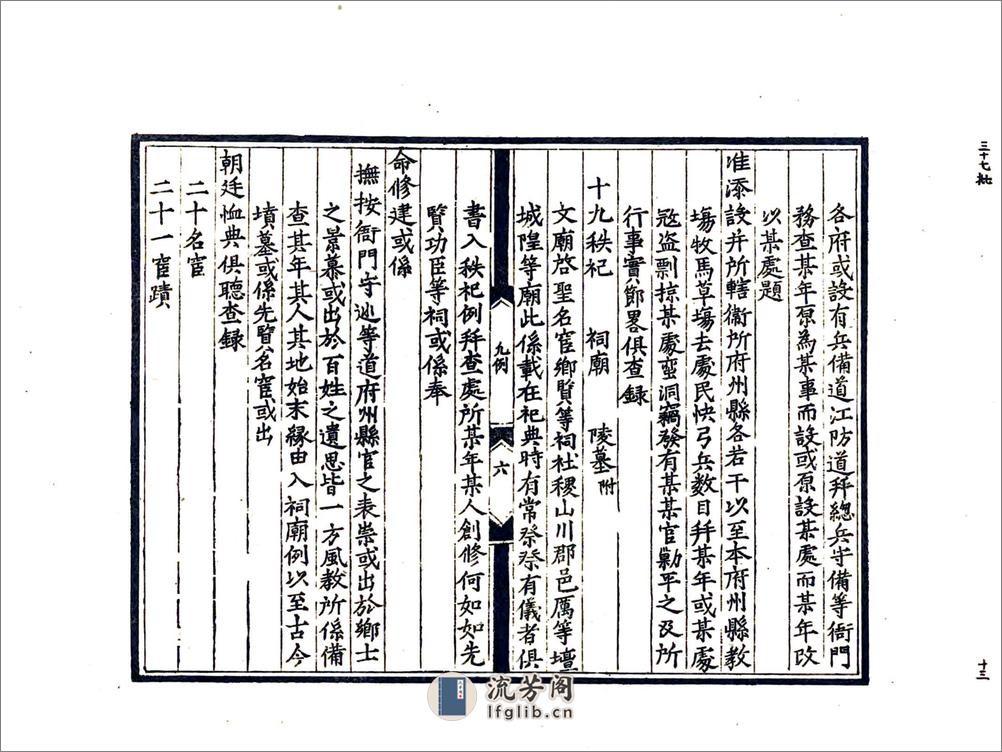 各府或設有兵備道江防道拜總兵守備等衙門
務查某年原為某事而設或原設某處而某年改
以某處題
准添設并所轄衞所府州縣各若干以至本府州縣教
塲牧馬草塲去處民快弓兵数目拜某年或某處
宼盗剽掠某處蛮洞竊發有某某官勦平之及所
行事實節畧俱查録
十九秩祀 祠廟 陵墓附
文廟啓聖名宦鄉賢等祠社稷山川郡邑厲等壇
城隍等廟此係載在祀典時有常祭祭有儀者俱
凡例 六
書入秩祀例拜查處所某年某人創修何如如先
賢功臣等祠或係奉
命修建或係
撫按衙門守巡等道府州縣官之表崇或出於鄉士
之景慕或出於百姓之遺思皆一方風教所係備
查其年其人其地始末緣由入祠廟例以至古今
墳墓或係先賢名宦或出
朝廷恤典俱聽查録
二十名宦
二十一宦蹟
三十七批
十三
流芳阁
lfglib.cn